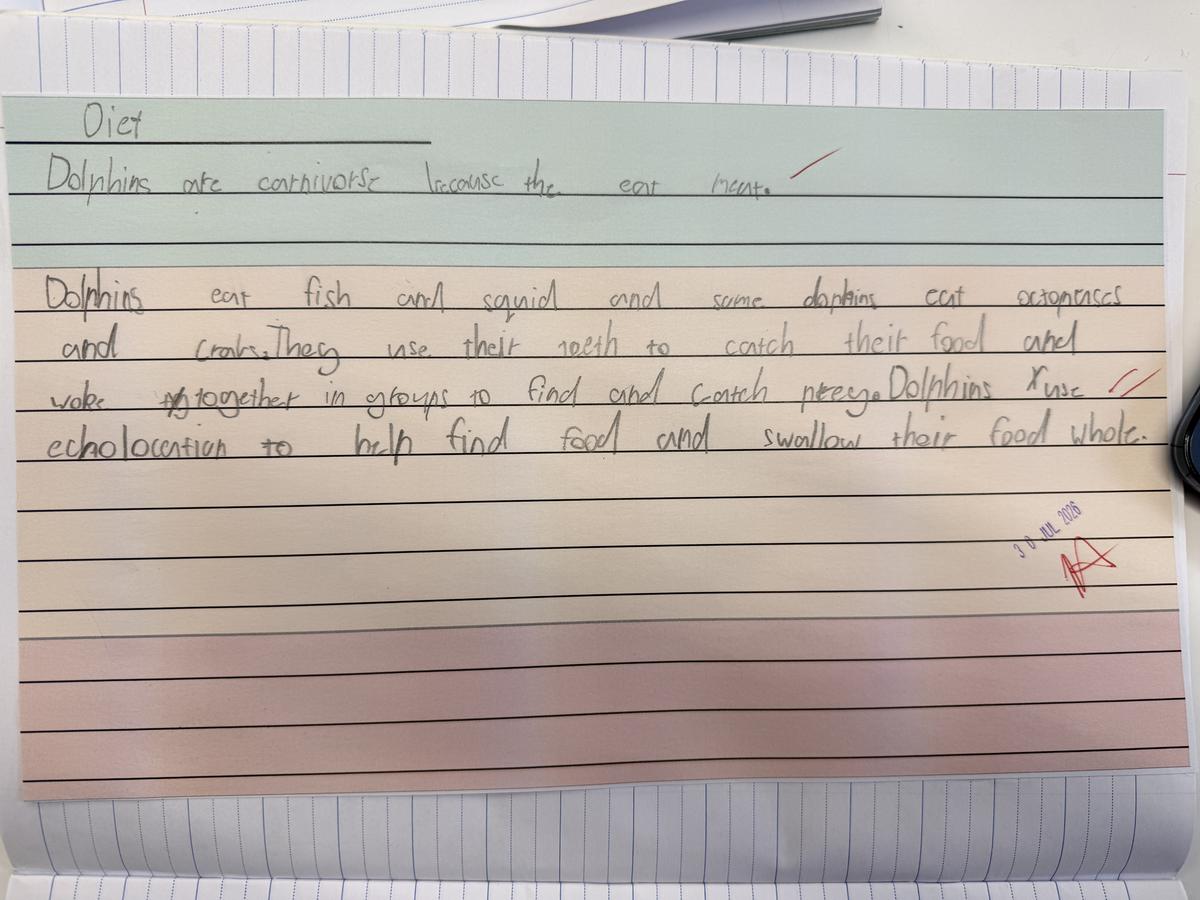 Diet
Dolphins are carnivorse because the eat meat.
Dolphins eat fish and squid and some dophins eat octopuses
and crabs. They use their teeth to catch their food and
woke together in groups to find and catch preey. Dolphins use
echolocation to help find food and swallow their food whole.
30 JUL 2026